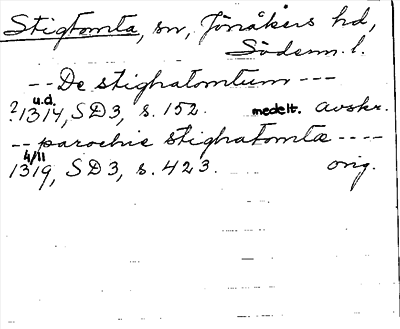 Stigtomta, sn, Jönåkers hd,
Söderm. l.
-- De stighatomtum ---
u.d.
?1314, SD3, s. 152. medelt. avskr.
-- parochie stighatomtæ ----
4/11
1319, SD3, s. 423. orig.